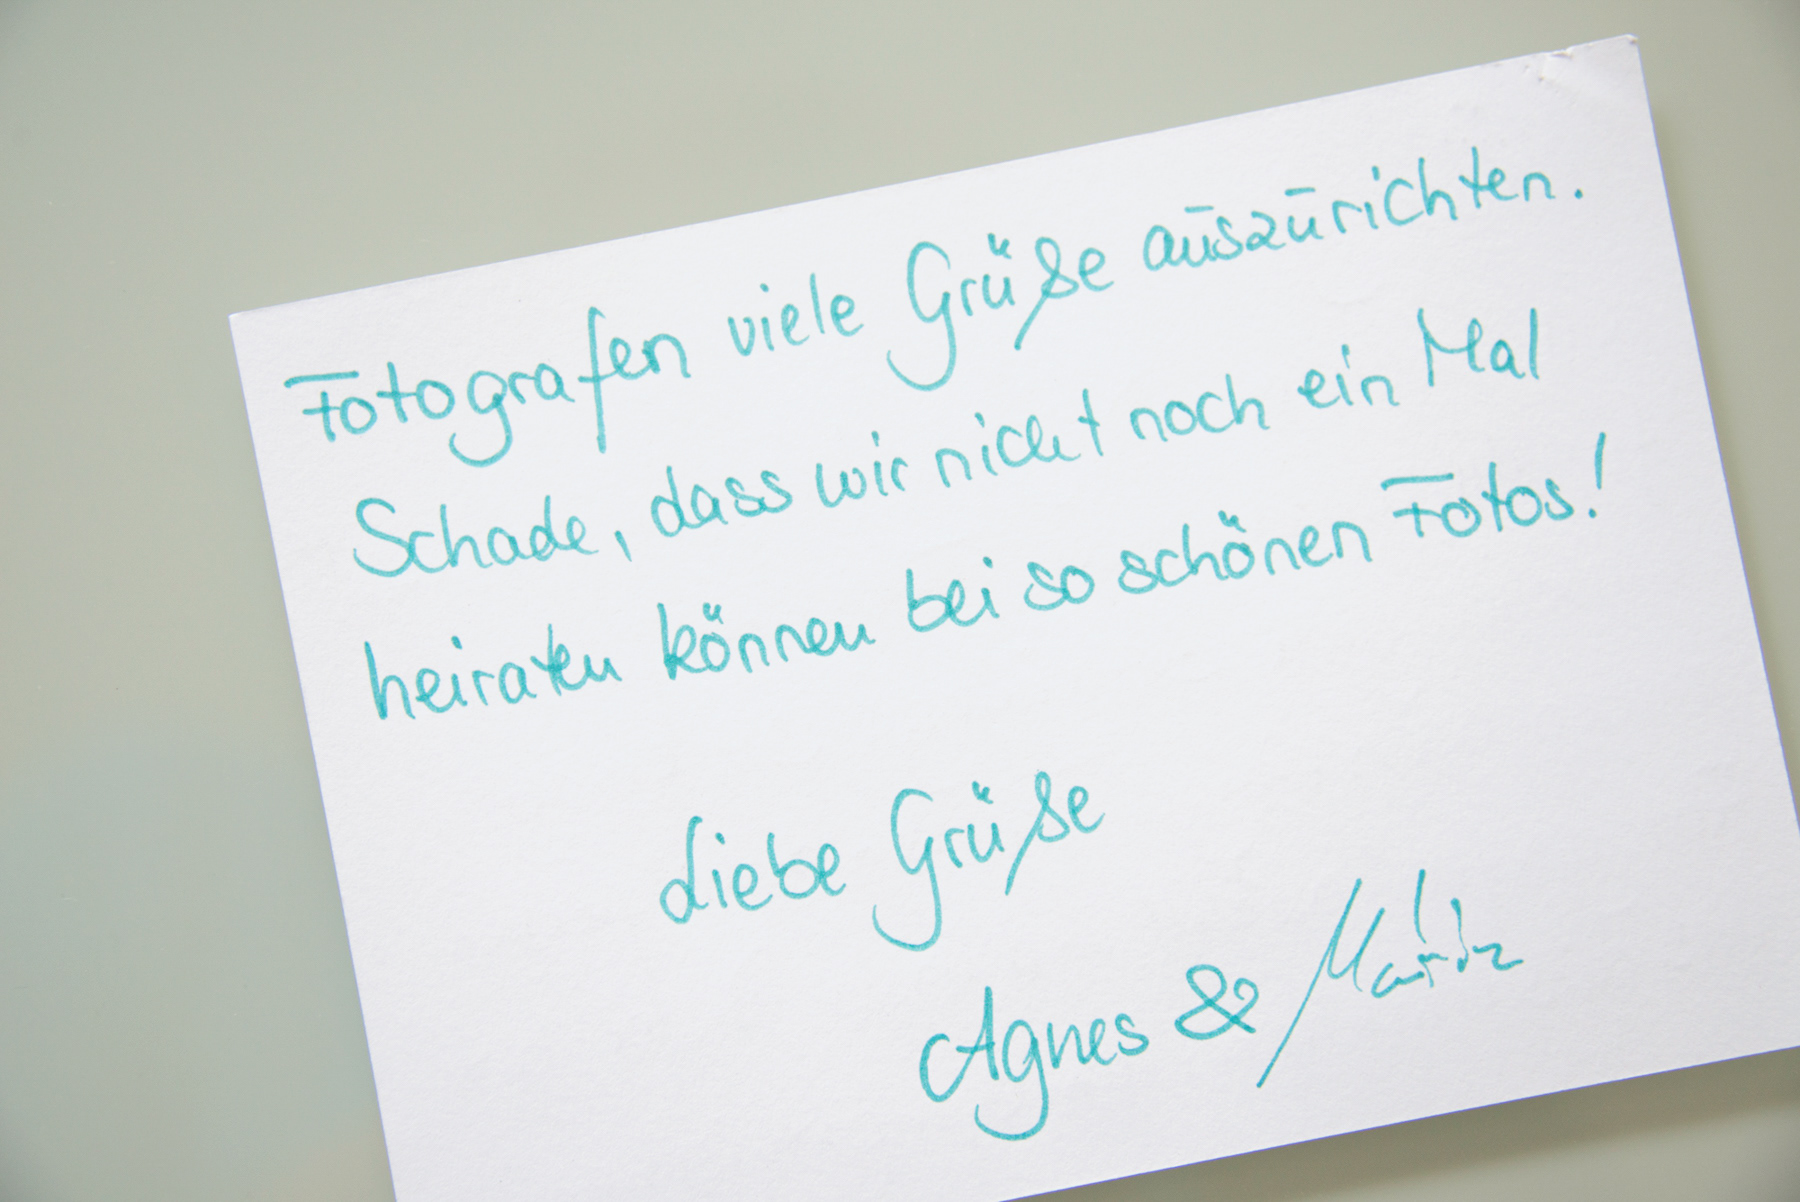 Fotografen viele Grüße auszurichten.
Schade, dass wir nicht noch ein Mal
heiraten können bei so schönen Fotos!
Liebe Grüße
Agnes & Martin